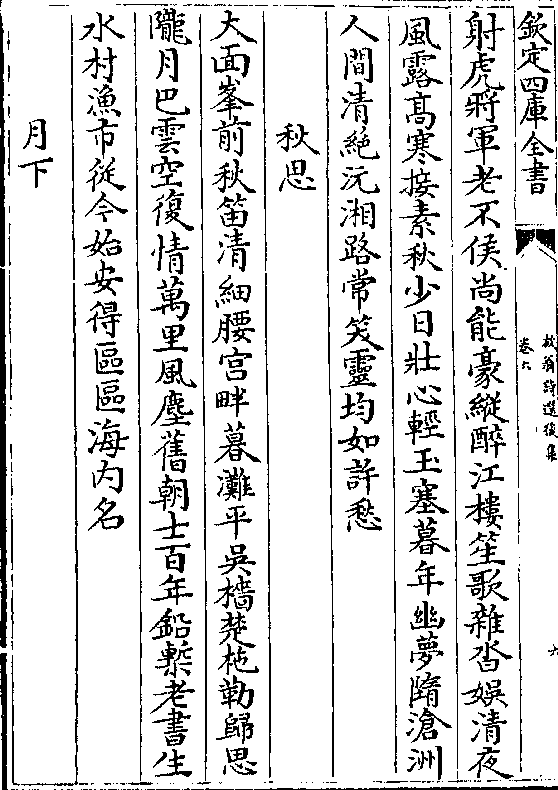 欽定四庫全書
放翁詩選後集
卷六
六
射虎將軍老不侯尚能豪縱醉江樓笙歌雜沓娱清夜
風露髙寒接素秋少日壯心輕玉塞暮年幽夢隋滄洲
人間清絶沅湘路常笑靈均如許愁
秋思
大面峯前秋笛清細腰宫畔暮灘平吳檣楚柂勒歸思
隴月巴雲空復情萬里風塵舊朝士百年鉛槧老書生
水村漁市從今始安得區區海内名
月下